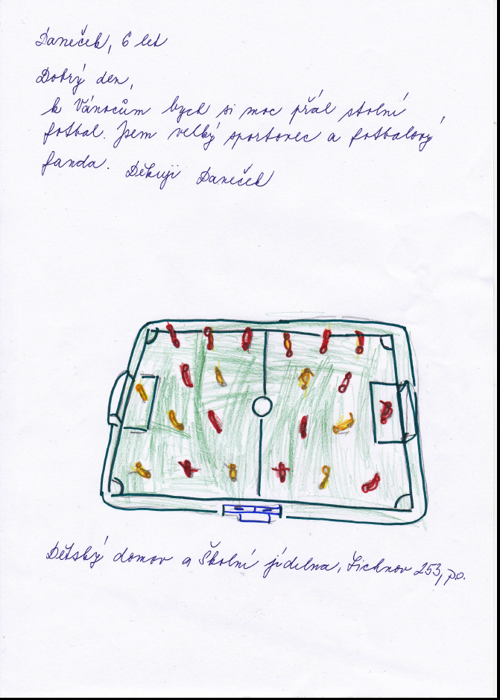 Daneček, 6 let
Dobrý den,
k Vánocům bych si moc přál stolní
fotbal. Jsem velký sportovec a fotbalový
fanda. Děkuji Daneček
Dětský domov a Školní jídelna, Lichnov 253, p.o.